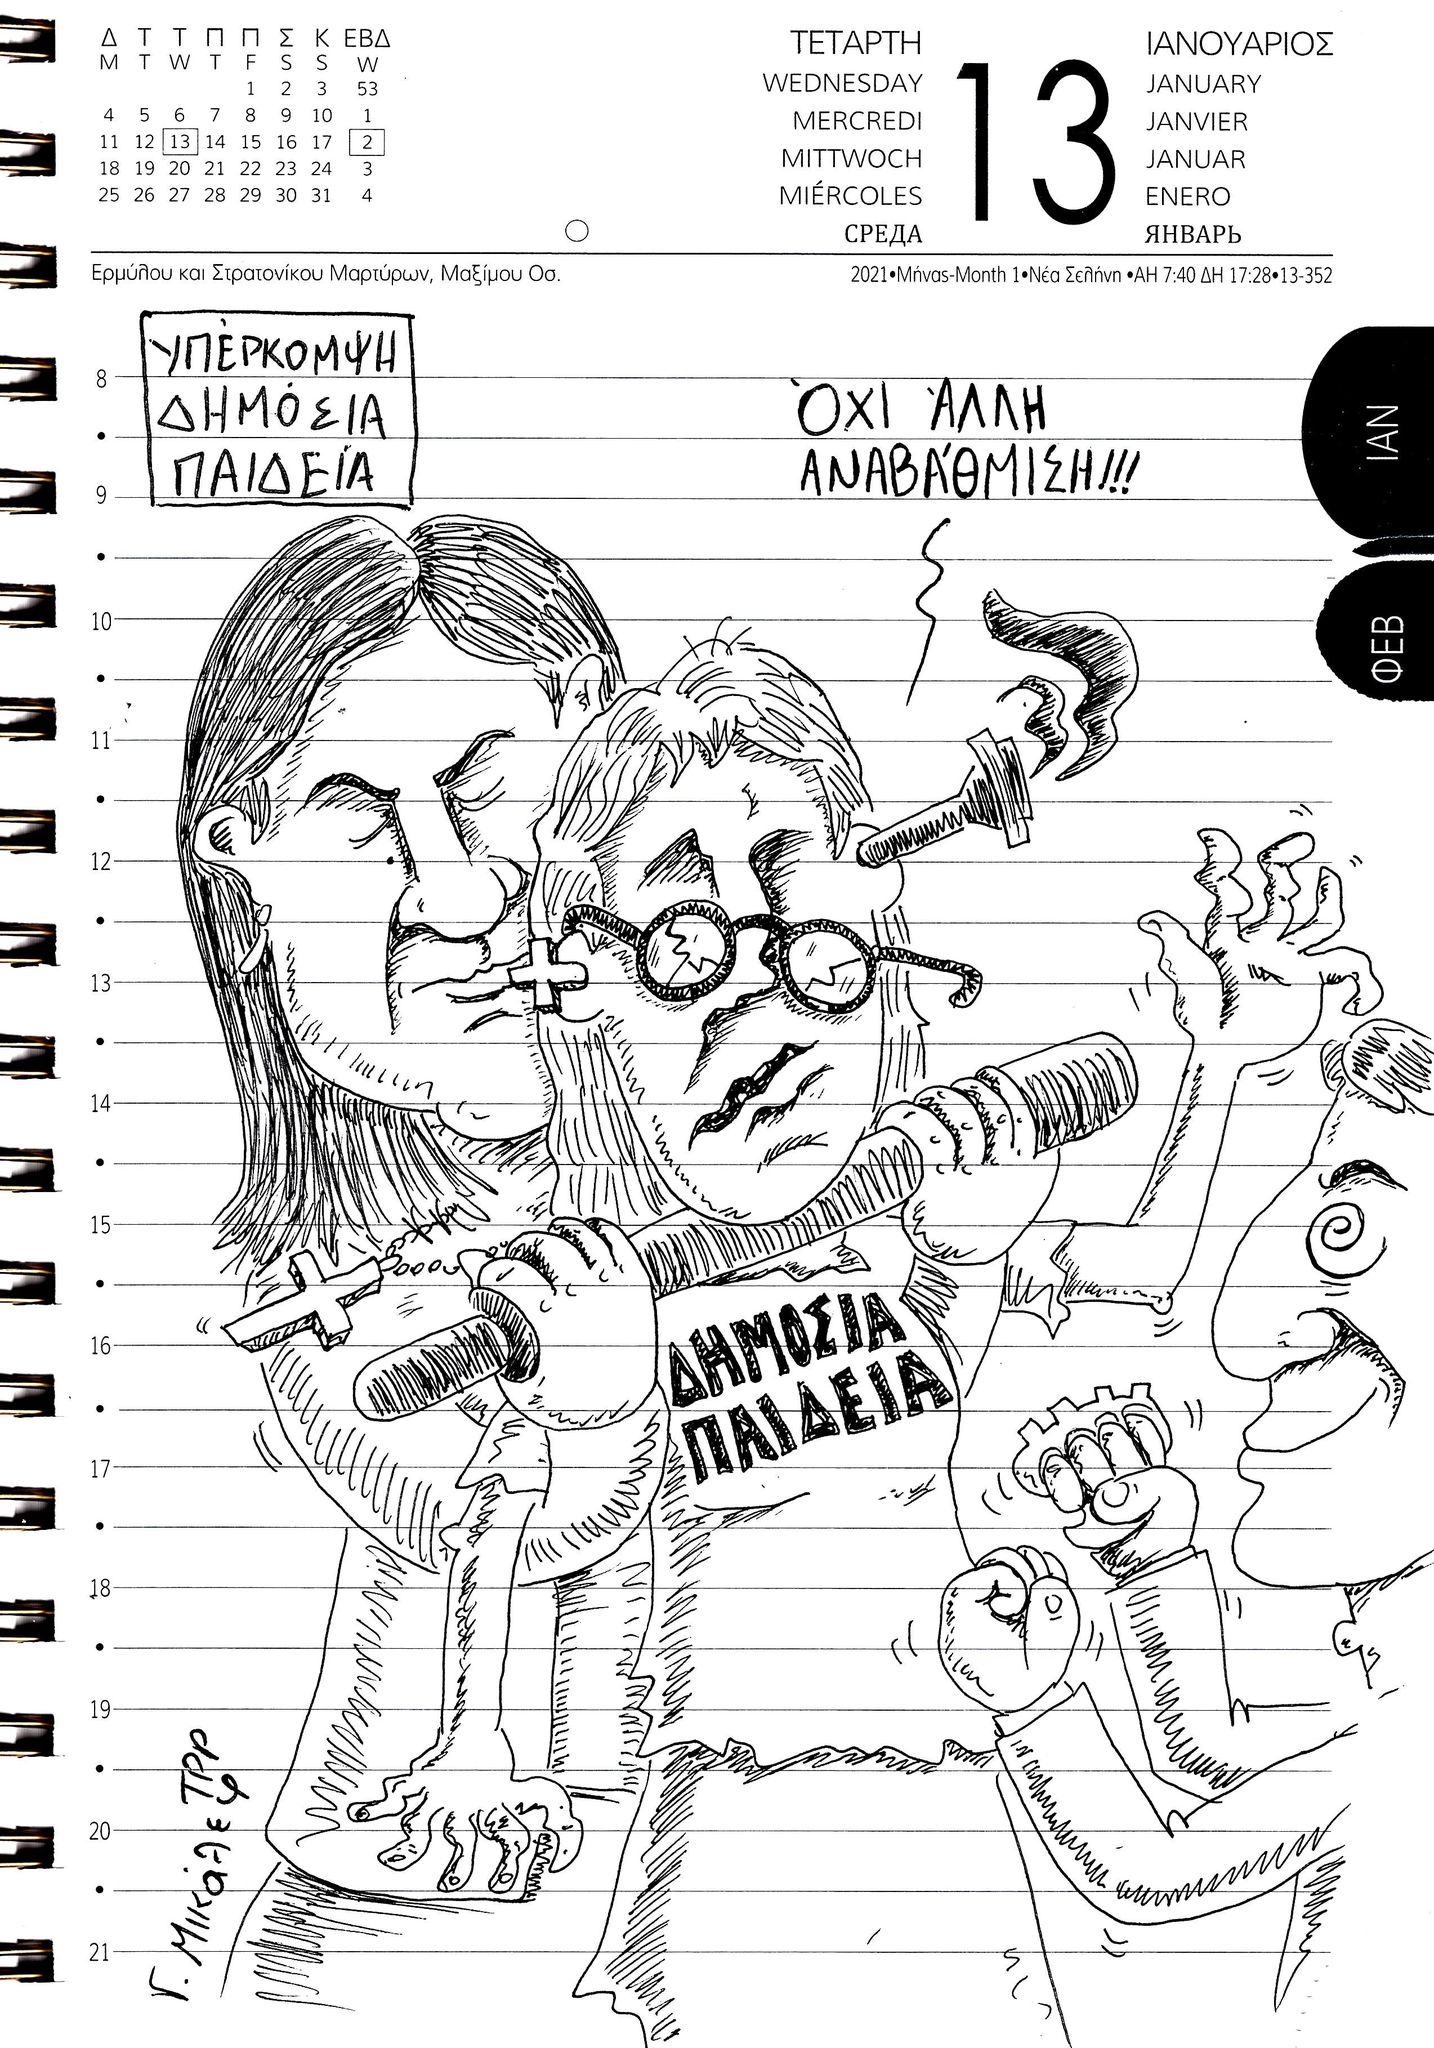 Δ Τ Τ Π Π Σ Κ ΕΒΔ
M T W T F S S W
1 2 3 53
4 5 6 7 8 9 10 1
11 12 13 14 15 16 17 2
18 19 20 21 22 23 24 3
25 26 27 28 29 30 31 4
ΤΕΤΑΡΤΗ
WEDNESDAY
MERCREDI
MITTWOCH
MIÉRCOLES
СРЕДА
13
ΙΑΝΟΥΑΡΙΟΣ
JANUARY
JANVIER
JANUAR
ENERO
ЯНВАРЬ
Ερμύλου και Στρατονίκου Μαρτύρων, Μαξίμου Οσ.
2021•Μήνας-Month 1•Νέα Σελήνη •ΑΗ 7:40 ΔΗ 17:28•13-352
ΥΠΈΡΚΟΜΨΗ
ΔΗΜΌΣΙΑ
ΠΑΙΔΕΊΑ
ΌΧΙ ΆΛΛΗ
ΑΝΑΒΆΘΜΙΣΗ!!!
ΙΑΝ
ΦΕΒ
8
9
10
11
12
13
14
15
16
17
18
19
20
21
ΔΗΜΟΣΙΑ
ΠΑΙΔΕΙΑ
Γ. Μικάλεφ